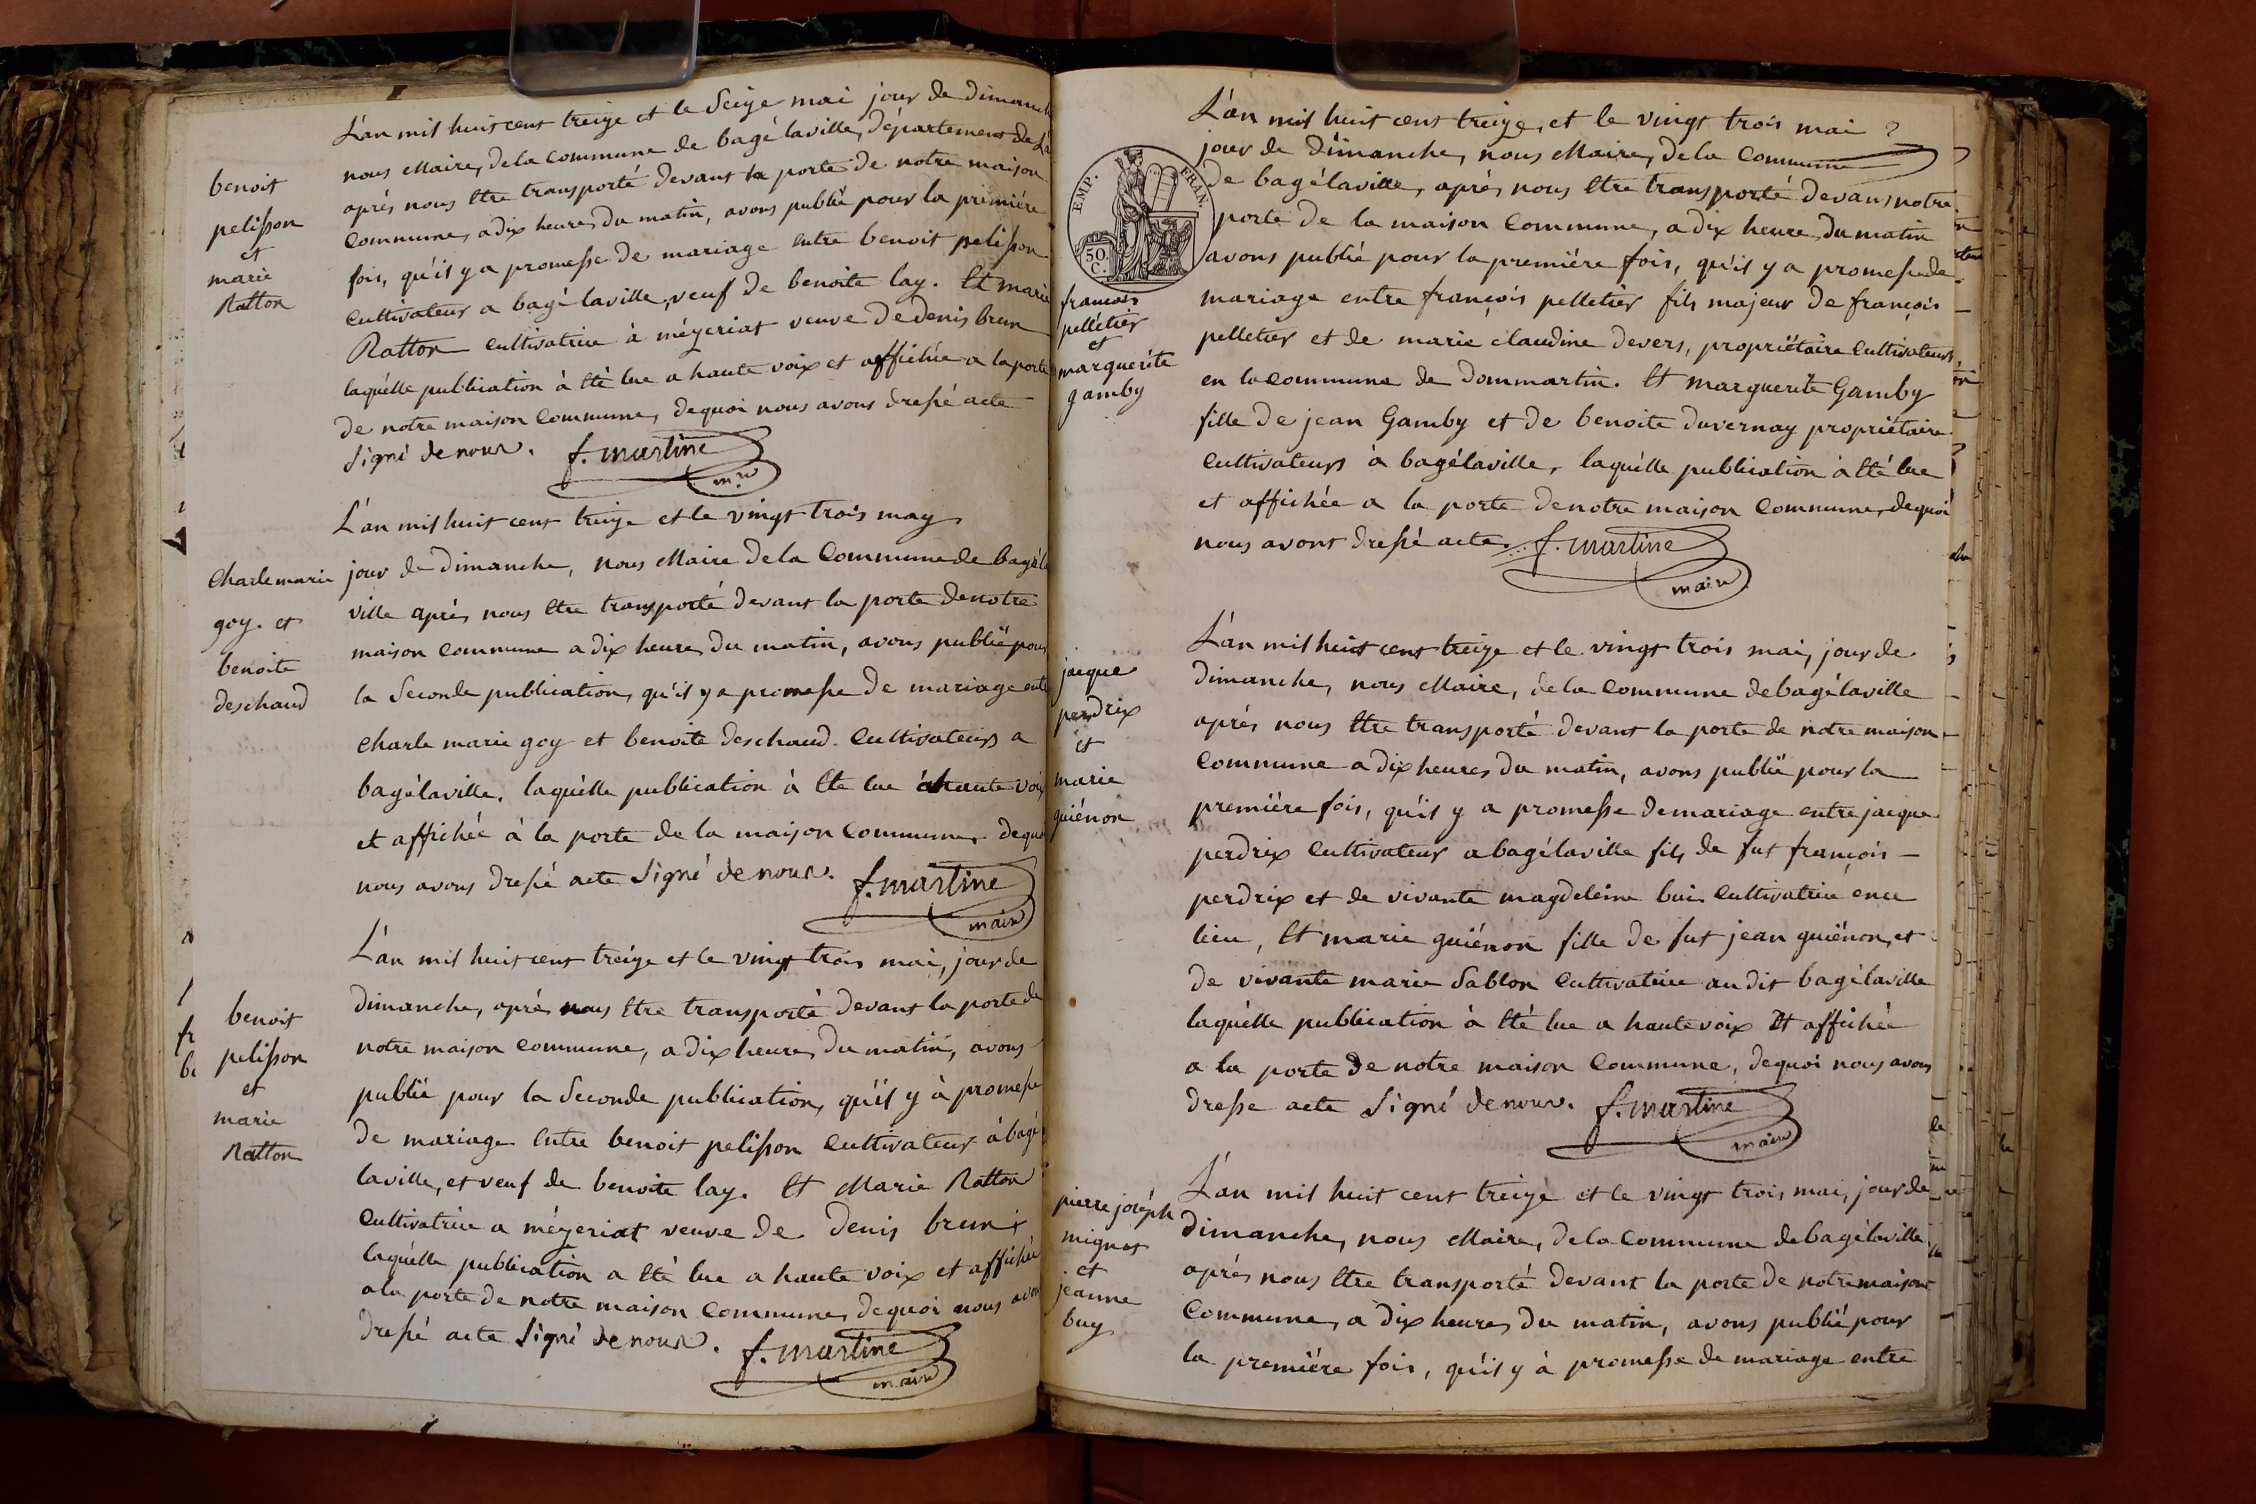 benoit
pelisson
et
marie
Ratton
L'an mil huit cent treize et le Seize mai jour de dimanche
nous Maire, de la Commune de bagé laville, département de
après nous être transporté devant la porte de notre maison
Commune, a dix heures du matin, avons publié pour la première
fois, qu'il y a promesse de mariage entre benoit pelisson
Cultivateur a bagé laville, veuf de benoite lay. Et marie
Ratton cultivatrice à mézeriat veuve de denis brun
laquelle publication à été lue a haute voix et affichée a la porte
de notre maison Commune, dequoi nous avons dressé acte
Signé de nous. f. martine
Charle marie
goy. et
benoite
deschaud
L'an mil huit cent treize et le vingt trois may
jour de dimanche, nous Maire de la Commune de bagé la
ville après nous être transporté devant la porte de notre
maison Commune a dix heures du matin, avons publié pour
la Seconde publication, qu'il y a promesse de mariage entre
Charle marie goy et benoite deschaud. Cultivateurs a
bagélaville, laquelle publication à été lue à haute voix
et affichée à la porte de la maison Commune, dequoi
nous avons dressé acte Signé de nous. f. martine
maire
benoit
pelisson
et
marie
Ratton
L'an mil huit cent treize et le vingt trois mai, jour de
dimanche, après nous être transporté devant la porte de
notre maison Commune, a dix heures du matin, avons
publié pour la Seconde publication, qu'il y à promesse
de mariage entre benoit pelisson Cultivateur à bagé
laville, et veuf de benoite lay. Et Marie Ratton
Cultivatrice a mézeriat veuve de denis brun
laquelle publication a été lue a haute voix et affichée
a la porte de notre maison Commune, dequoi nous avons
dressé acte Signé de nous. f. martine
maire
EMP. FRAN.
50.
C.
françois
pelletier
et
marguerite
gamby
L'an mil huit cent treize, et le vingt trois mai
jour de dimanche, nous Maire, de la Commune
de bagélaville, après nous être transporté devans notre
porte de la maison Commune, a dix heure du matin
avons publié pour la première fois, qu'il y a promesse de
mariage entre françois pelletier fils majeur de françois
pelletier et de marie claudine devers, propriétaire Cultivateurs
en la Commune de dommartin. Et marguerite Gamby
fille de jean Gamby et de benoite duvernay propriétaire
Cultivateurs à bagélaville, laquelle publication à été lue
et affichée a la porte de notre maison Commune, dequoi
nous avons dressé acte. f. martine
maire
jacque
perdrix
et
marie
guiénon
L'an mil huit cent treize et le vingt trois mai, jour de
dimanche, nous Maire, de la Commune de bagélaville
après nous être transporté devant la porte de notre maison
Commune a dix heures du matin, avons publié pour la
première fois, qu'il y a promesse de mariage entre jacque
perdrix Cultivateur a bagélaville fils de fut françois
perdrix et de vivante magdeleine Cultivatrice
lieu, Et marie guiénon fille de fut jean guiénon, et
de vivante marie Sablon Cultivatrice au dit bagélaville
laquelle publication à été lue a haute voix Et affichée
a la porte de notre maison Commune, dequoi nous avons
dresse acte Signé de nous. f. martine
maire
pierre joséph
mignot
et
jeanne
buy
L'an mil huit cent treize et le vingt trois mai, jour de
dimanche, nous Maire, de la Commune de bagélaville
après nous être transporté devant la porte de notre maison
Commune, a dix heures du matin, avons publié pour
la première fois, qu'il y à promesse de mariage entre